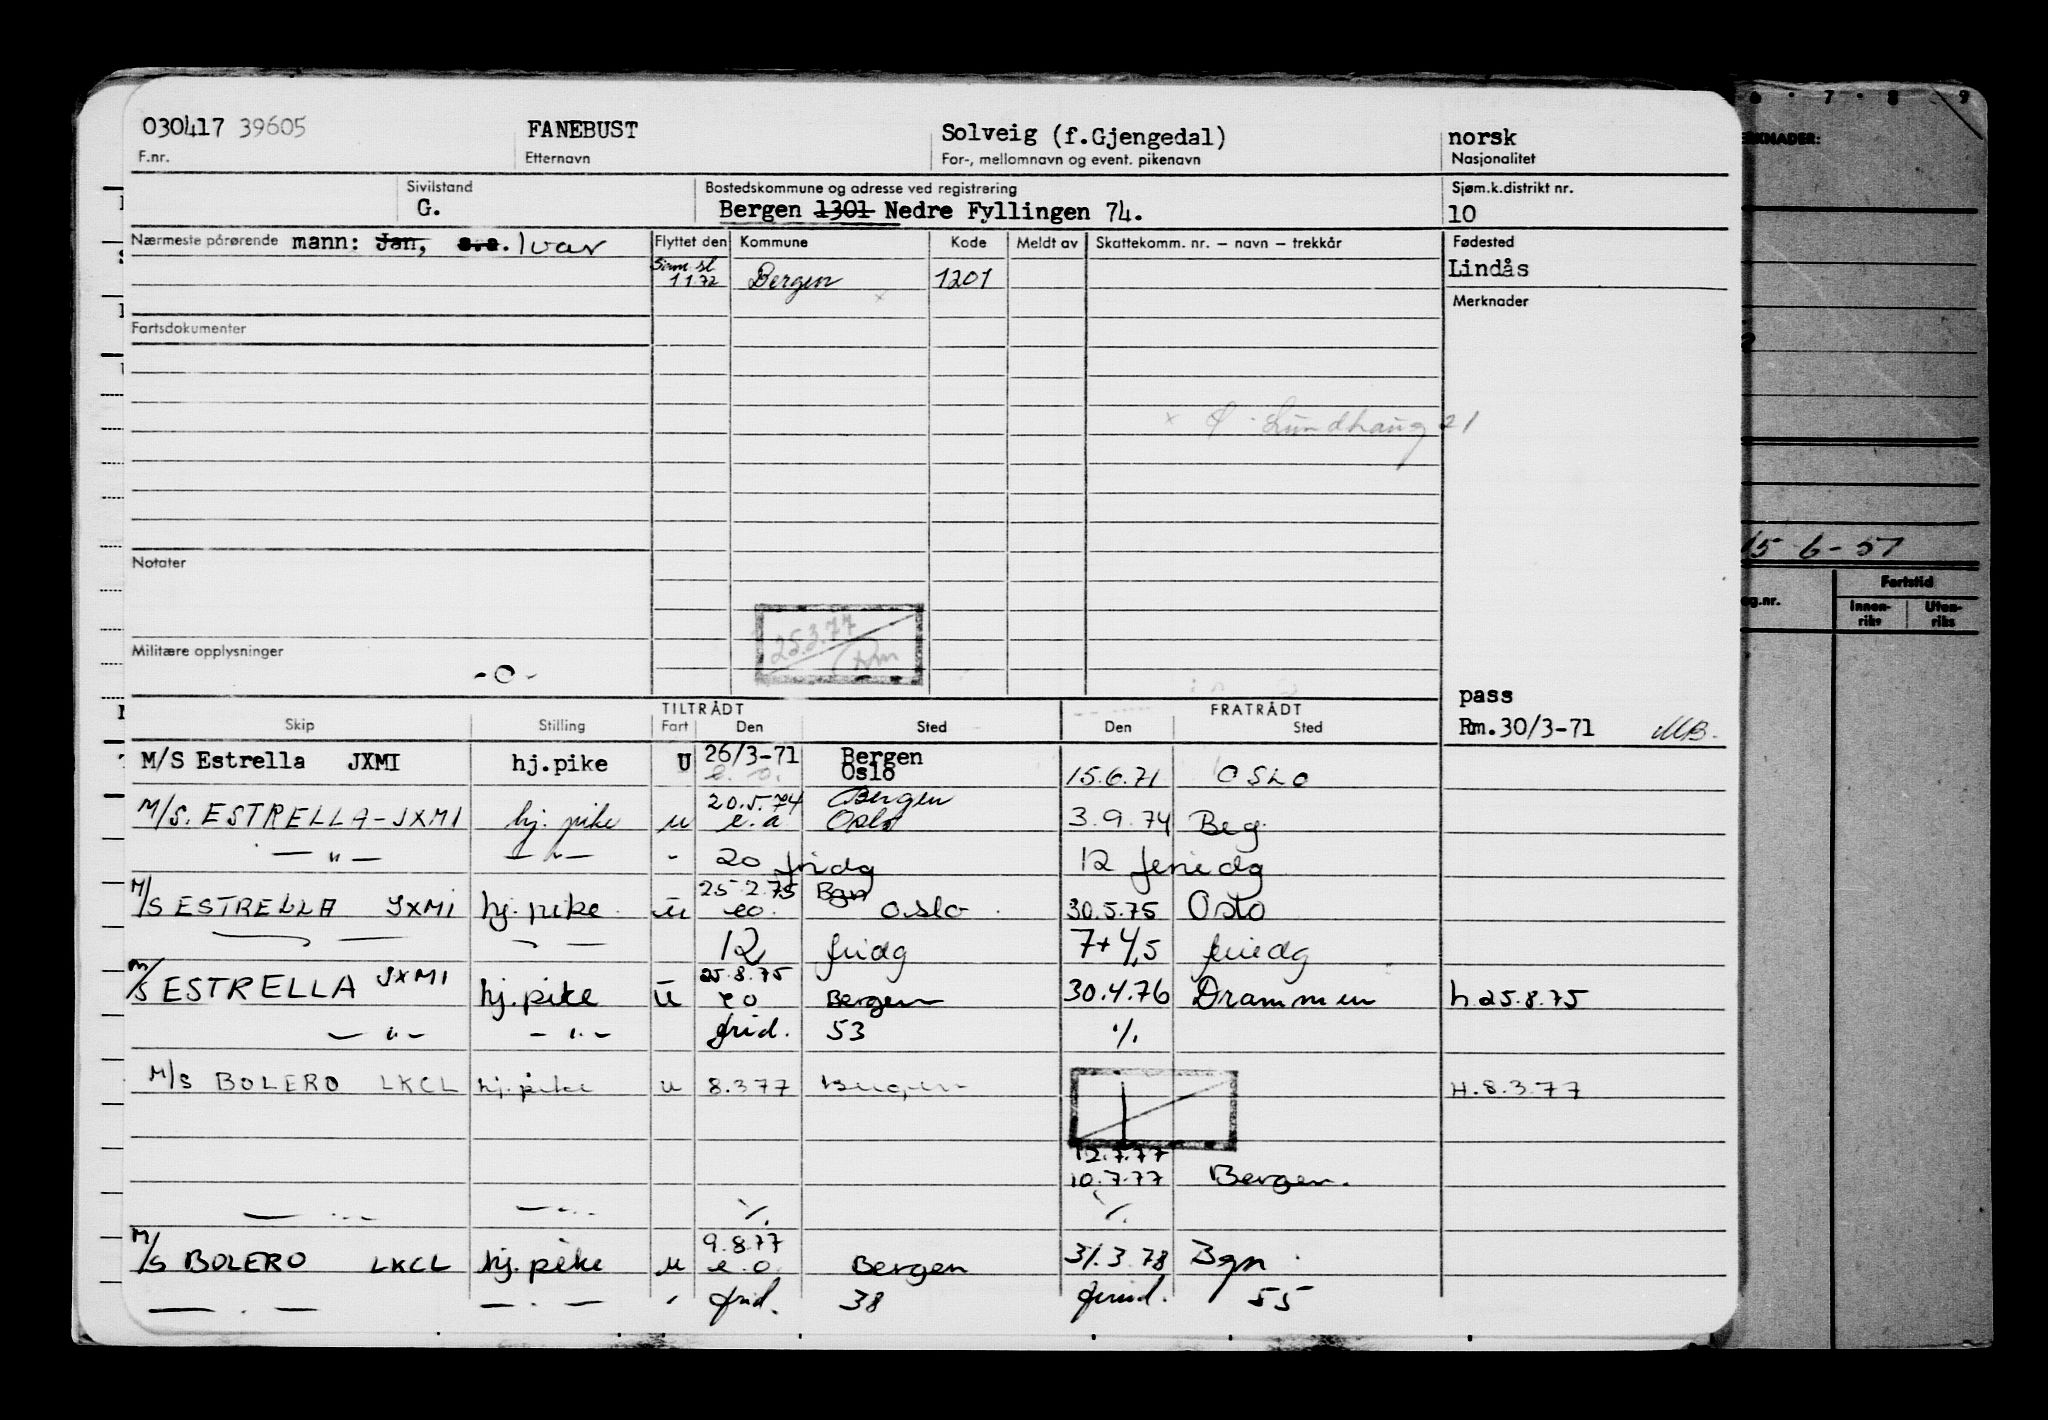 030417 39605 FANEBUST Solveig (f.Gjengedal) norsk
F.nr. Etternavn For-, mellomnavn og event. pikenavn Nasjonalitet
Sivilstand Bostedskommune og adresse ved registrering Sjøm.k.distrikt nr.
G. Bergen 1301 Nedre Fyllingen 74. 10
Nærmeste pårørende mann: Jan, s.a. Ivar Flyttet den Kommune Kode Meldt av Skattekomm. nr. – navn – trekkår Fødested
1.1.72 Bergen 1201 Lindås
Merknader
Fartsdokumenter
Lundhaug 21
Notater
25.3.77
Militære opplysninger
-O-
pass
TILTRÅDT FRATRÅDT
Skip Stilling Fart Den Sted Den Sted Rm.30/3-71 MB.
M/S Estrella JXMI hj.pike U 26/3-71 Bergen
e.o. Oslo 15.6.71 OSLO
20.5.74 Bergen
M/S. ESTRELLA-JXMI hj. pike u e.o Oslo 3.9.74 Beg.
— " — — " — - 20 fridg 12 feriedg
25.2.75 Bgn
M/S ESTRELLA JXMI hj.pike u eo. Oslo 30.5.75 Oslo
12 fridg 7+4,5 feriedg
25.8.75
M/S ESTRELLA JXMI hj.pike u eo Bergen 30.4.76 Drammen h.25.8.75
— " — — " — frid. 53 ./.
M/S BOLERO LKCL hj.pike u 8.3.77 Bergen H.8.3.77
12.7.77
10.7.77 Bergen.
— " — — " — ./. ./.
9.8.77
M/S BOLERO LKCL hj.pike u e.o Bergen 31.3.78 Bgn
— . — — . — frid. 38 feried. 55
6 · 7 · 8 · 9
RKNADER:
15-6-57
Fartstid
eg.nr. Innen- Uten-
riks riks